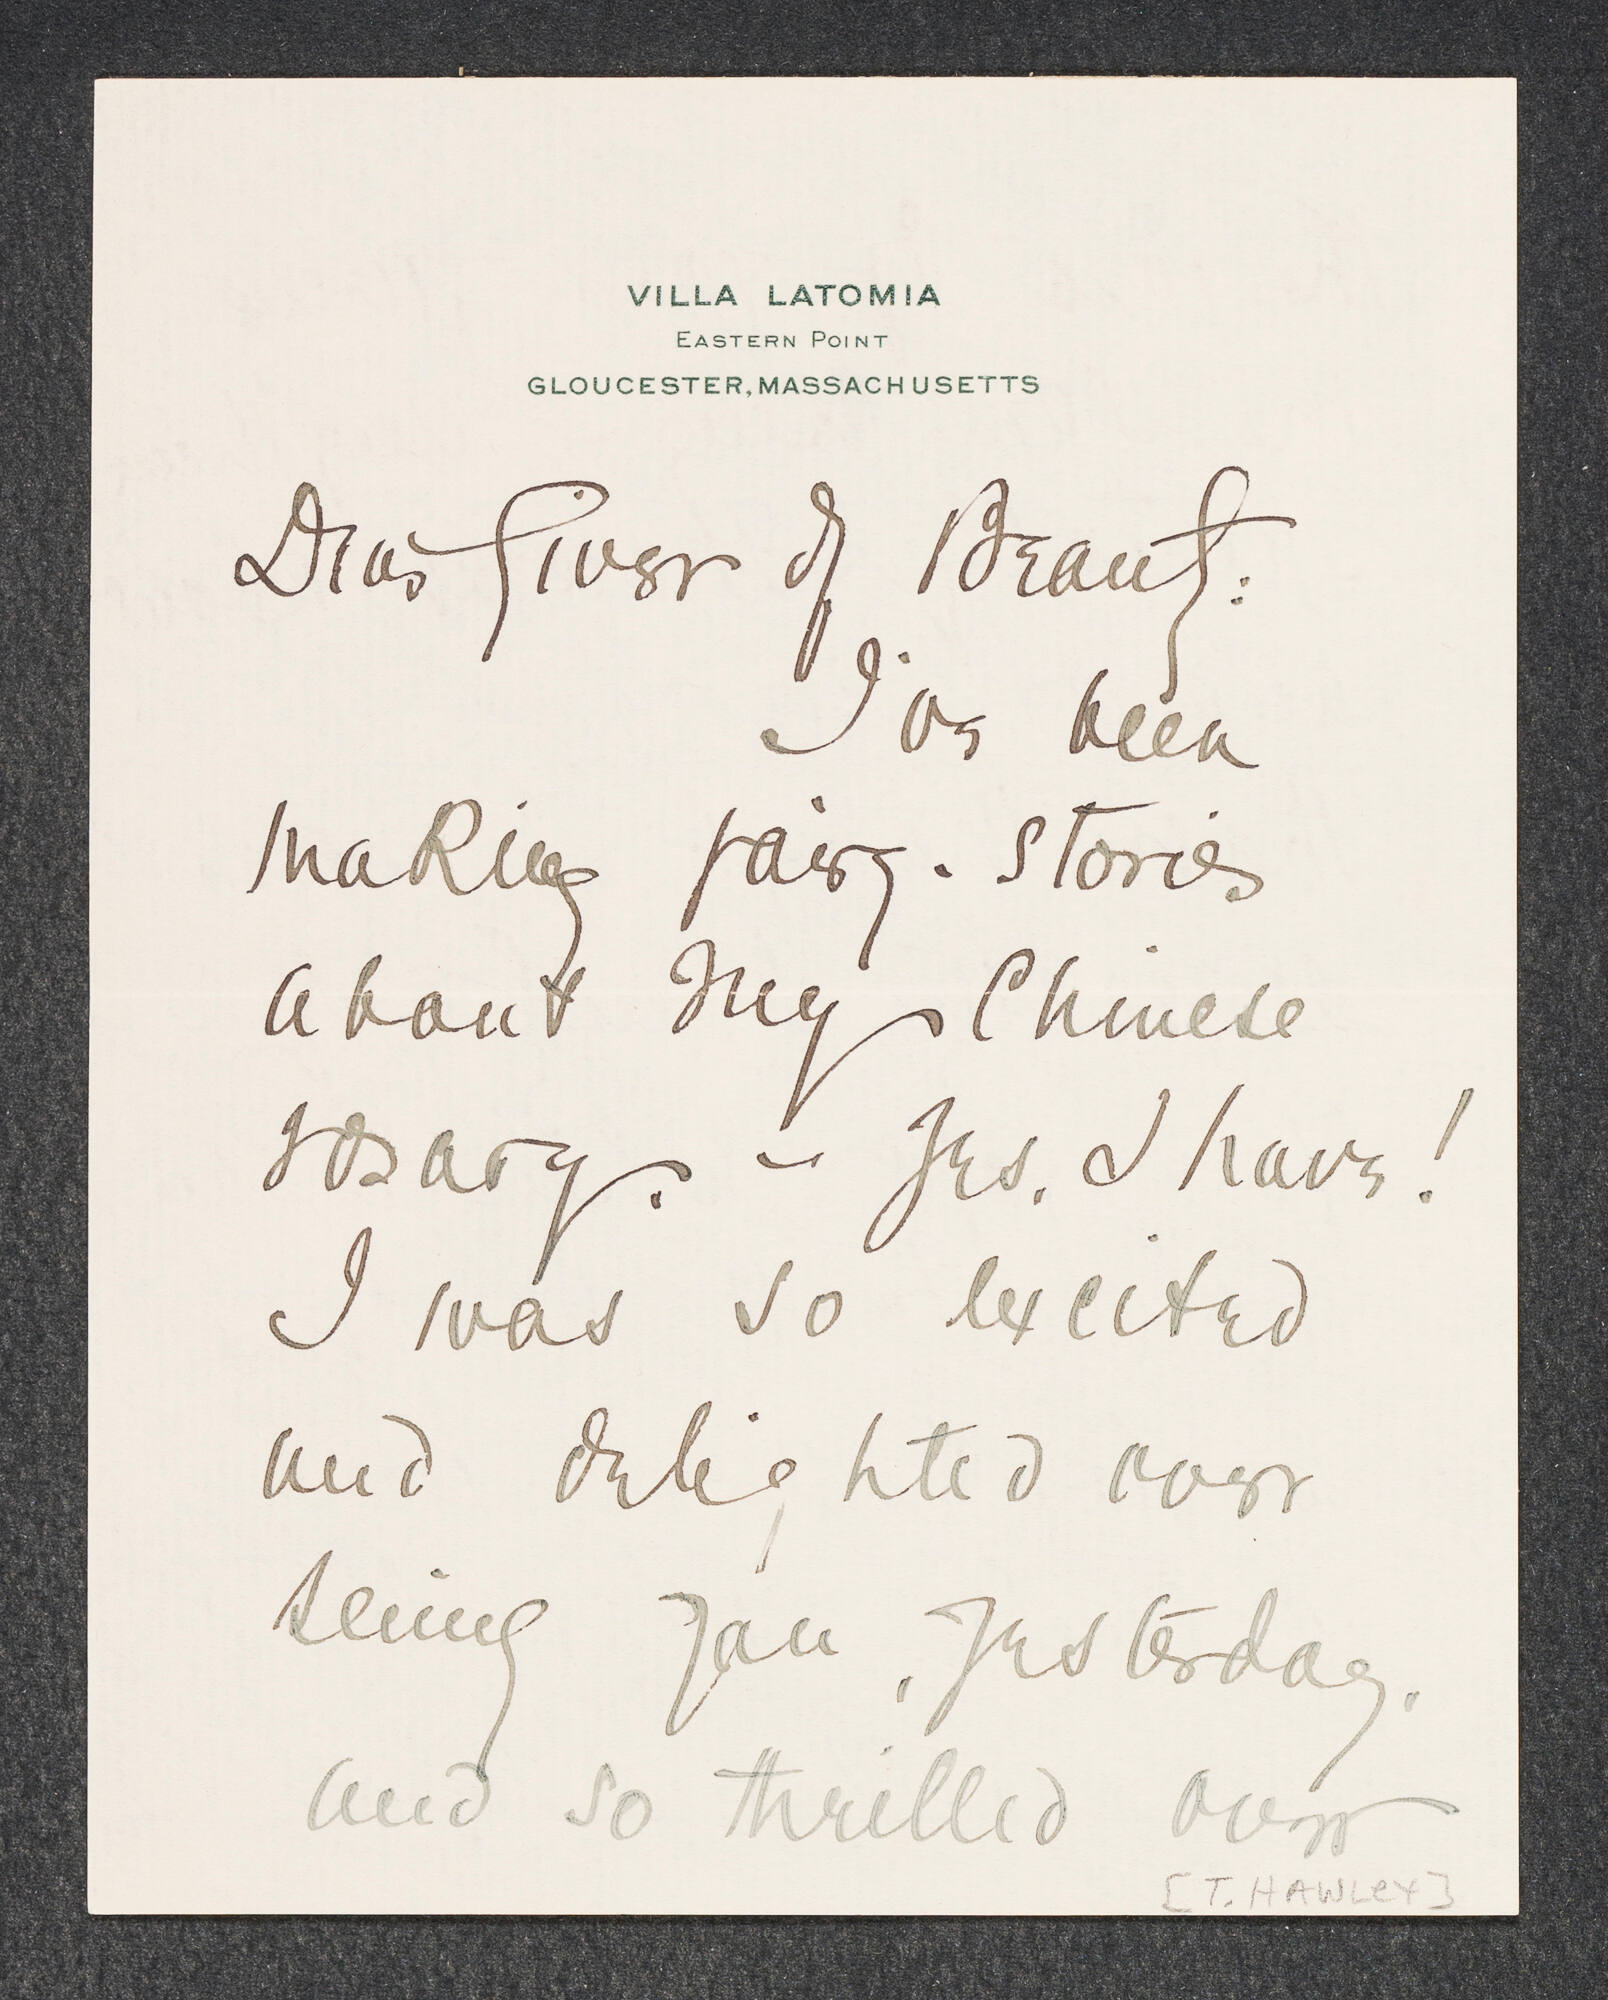 VILLA LATOMIA
EASTERN POINT
GLOUCESTER, MASSACHUSETTS
Dear Giver of Beauty:
I've been
making fairy-stories
about my Chinese
rosary. - Yes, I have!
I was so excited
and delighted over
seeing you, yesterday,
and so thrilled over
[T. HAWLEY]